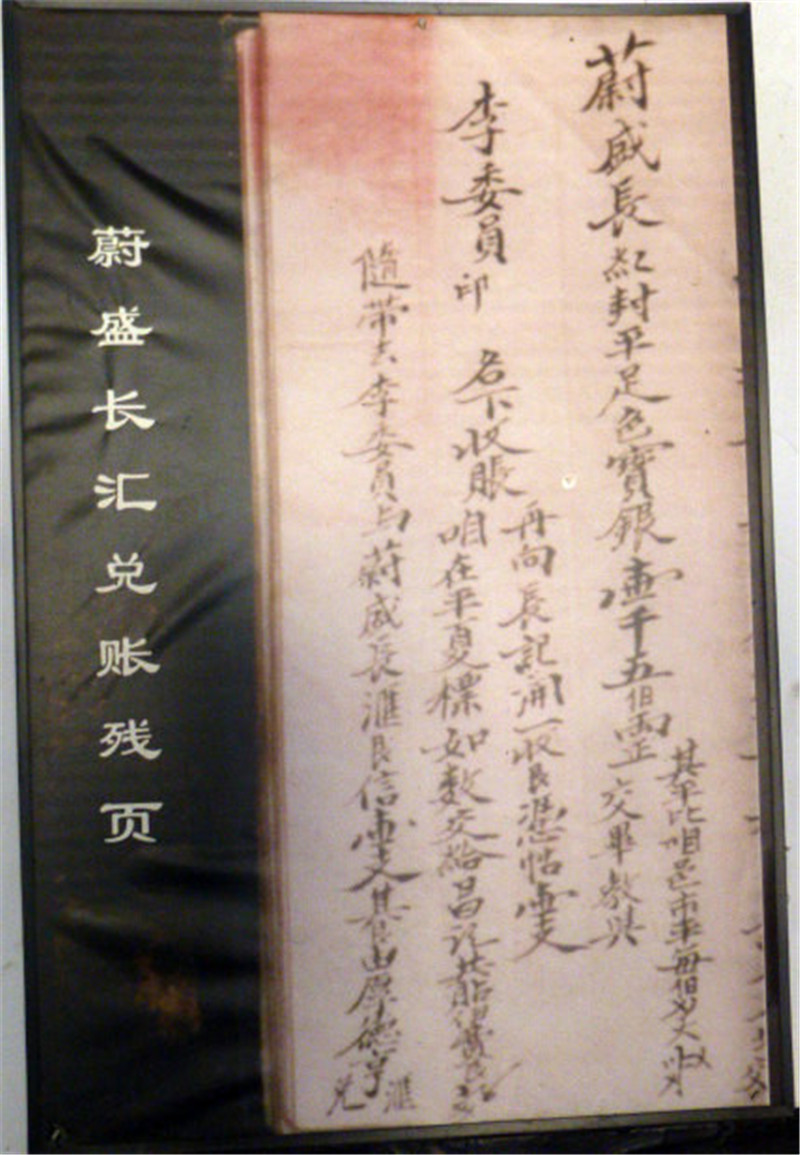 蔚盛長紅封平足色寶銀壹千五佰兩整交畢敎與
其平比咱邑市平每佰
李委員印名下收賬
再向長記開一收艮憑帖壹支
咱在平夏標如數交給昌記
隨帶去李委員与蔚盛長滙艮信壹支其艮由厚德亨滙兑
蔚盛长汇兑账残页